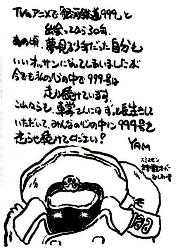 TVのアニメで「銀河鉄道999」と
出会ってから30年、
あの頃、夢見る少年だった自分も
いいオッサンになってしまいましたが
今でも私の心の中で999号は
走り続けています。
これからも、零士さんにはずっと長生きして
いただいて、みんなの心の中に999号を
走らせ続けてください!
YAM